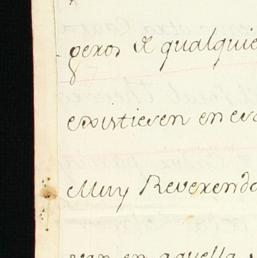 geros de qualquie
existieren en es
Muy Reverendo
van en aquella